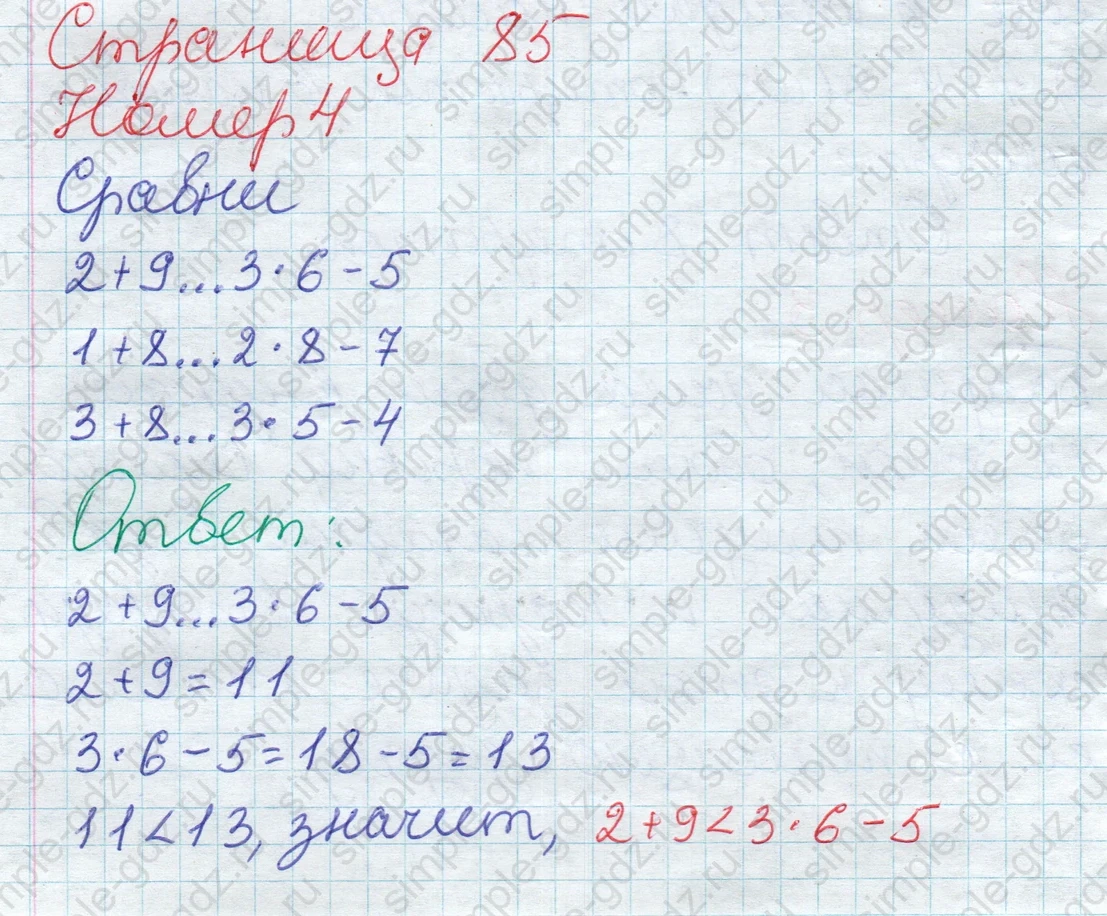 Страница 85
Номер 4
Сравни
2+9...3·6-5
1+8...2·8-7
3+8...3·5-4
Ответ:
2+9...3·6-5
2+9=11
3·6-5=18-5=13
11<13, значит, 2+9<3·6-5
simple-gdz.ru